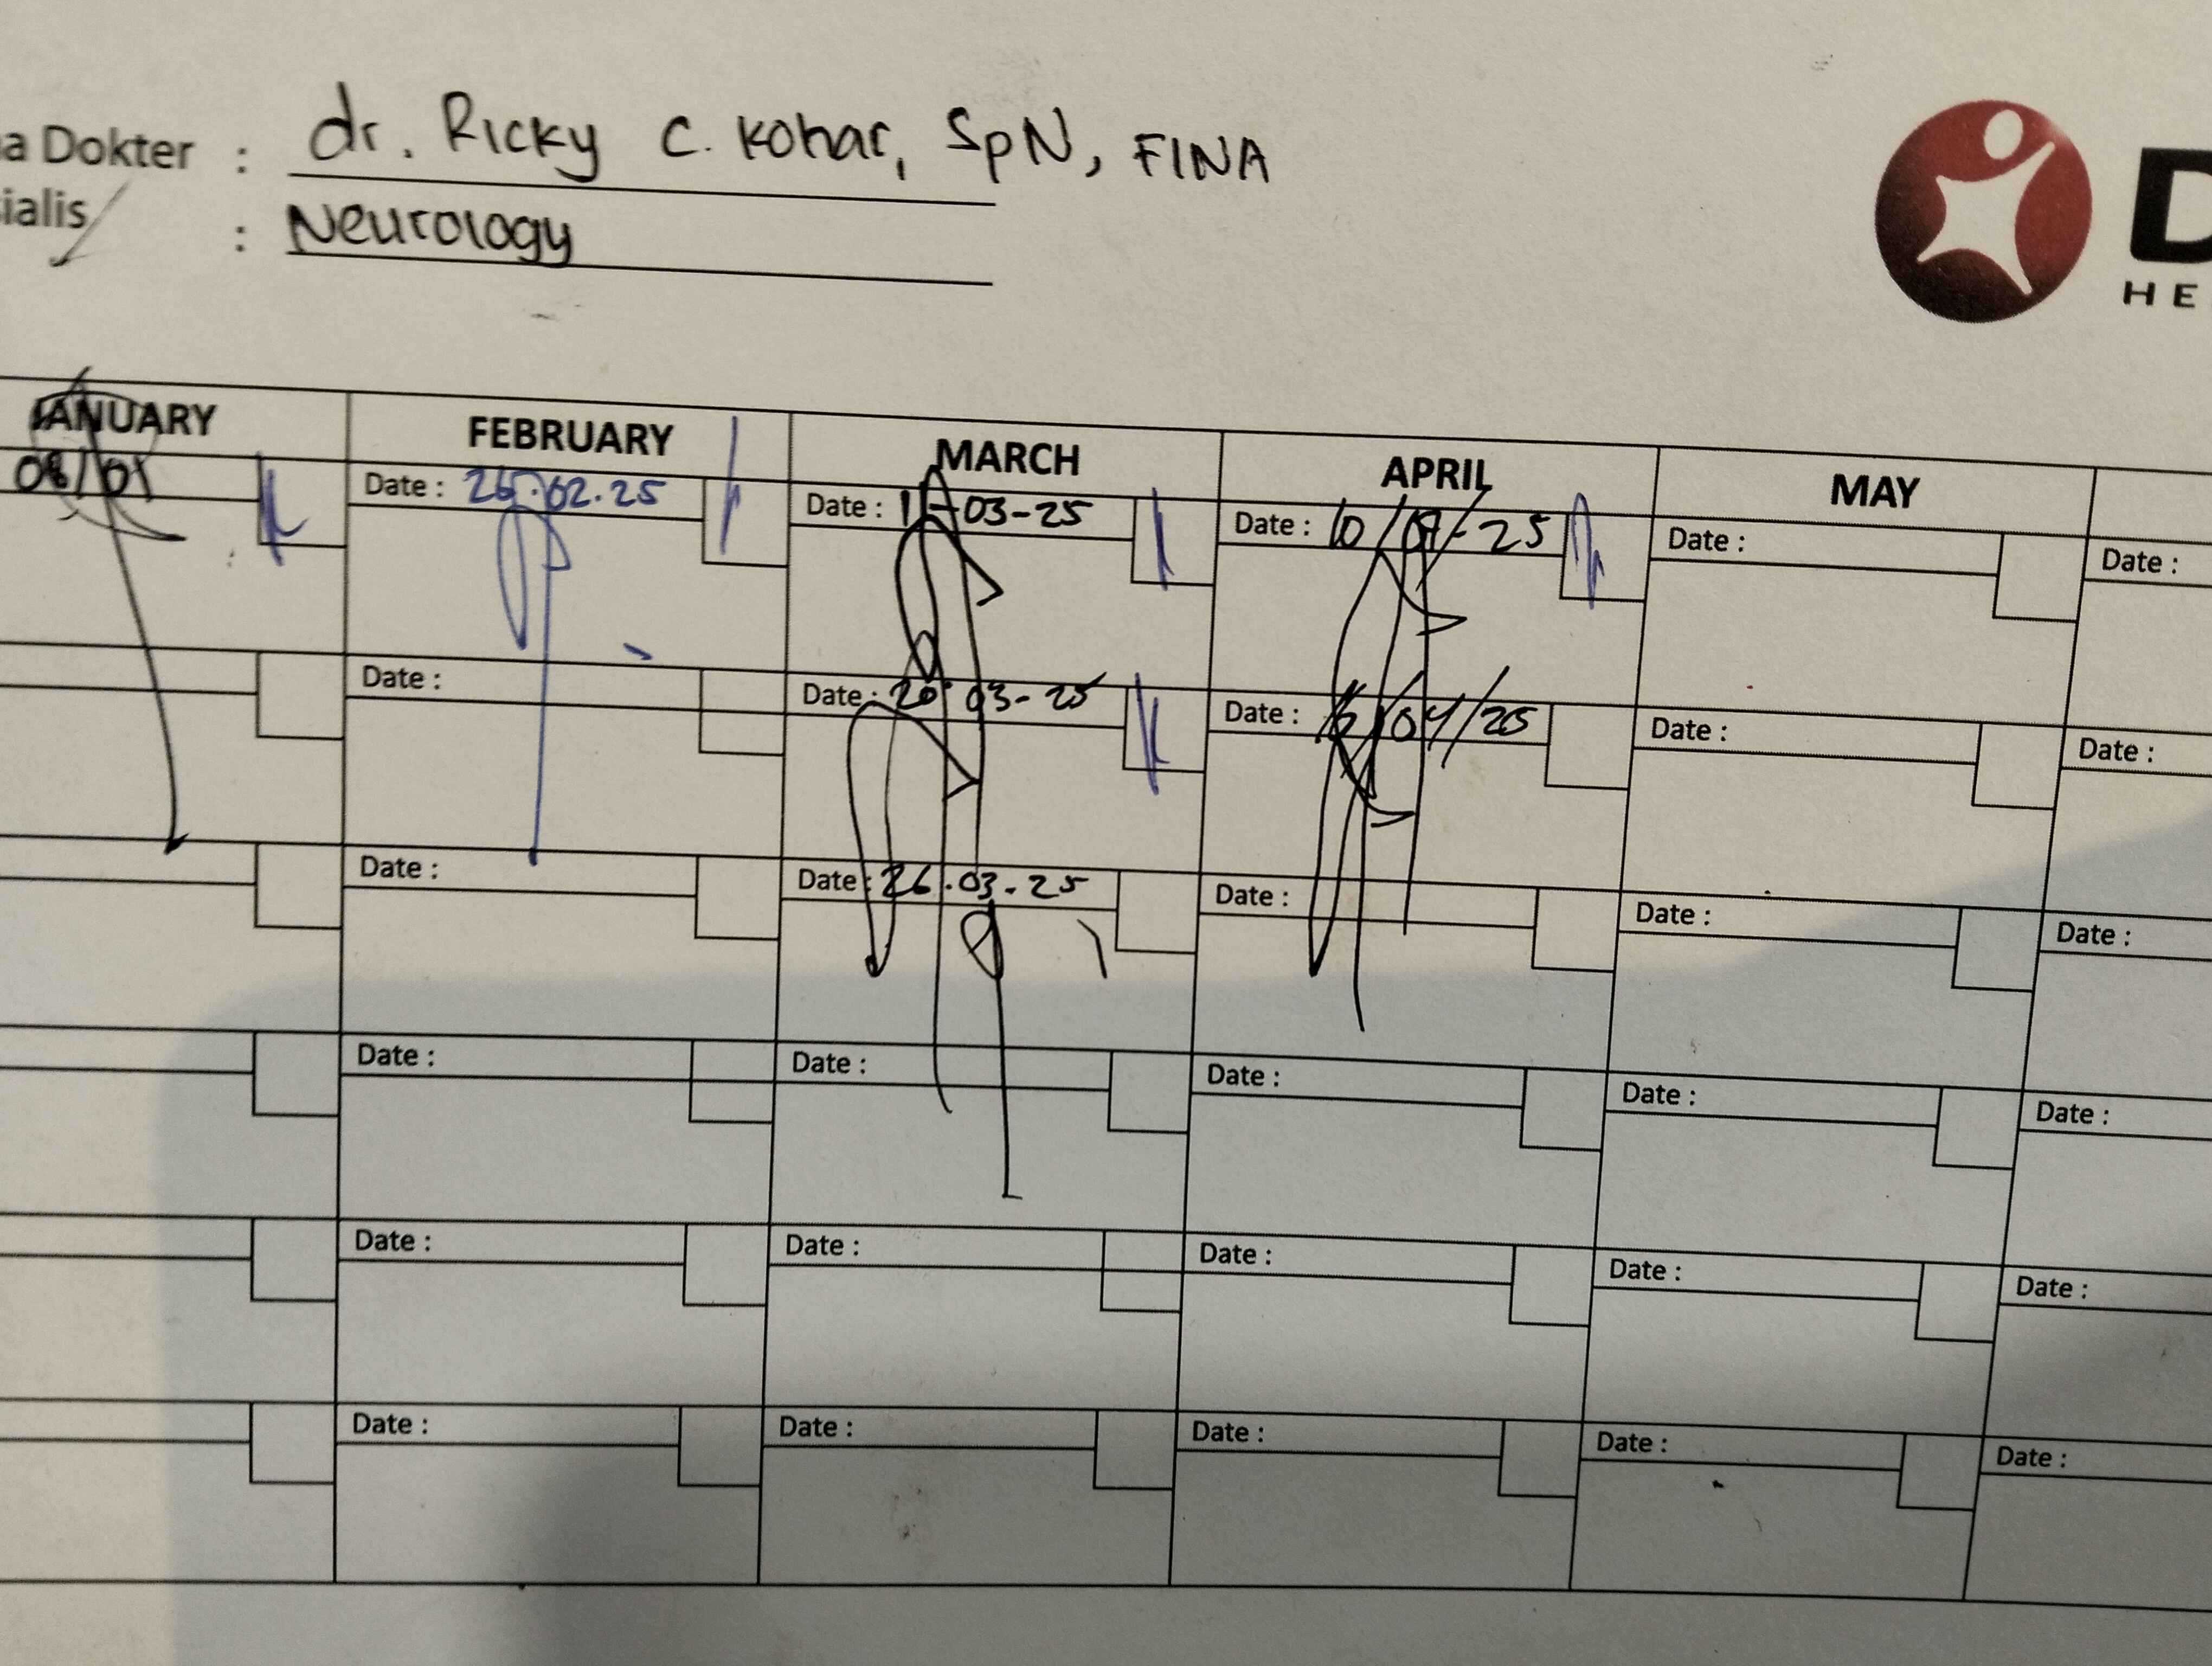 a Dokter : dr. Ricky C. Kohar, SpN, FINA
ialis : Neurology
D
HE
JANUARY FEBRUARY MARCH APRIL MAY
08/01 Date : 26.02.25 Date : -03-25 Date : 10/04-25 Date : Date :
Date : Date : 20-03-25 Date : /04/25 Date : Date :
Date : Date : 26.03.25 Date : Date : Date :
Date : Date : Date : Date : Date :
Date : Date : Date : Date : Date :
Date : Date : Date : Date : Date :